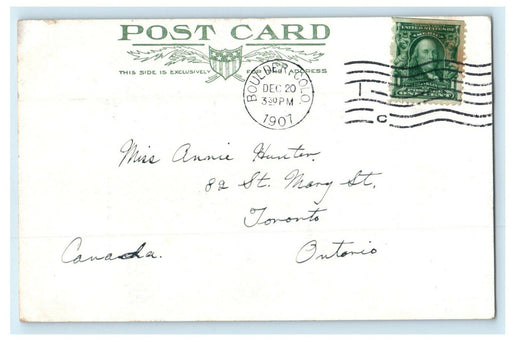 POST CARD
THIS SIDE IS EXCLUSIVELY FOR THE ADDRESS
BOULDER, COLO.
DEC 20
3 30 PM
1907
1
C
Miss Annie Hunter.
82 St. Mary St.
Toronto
Ontario
Canada.